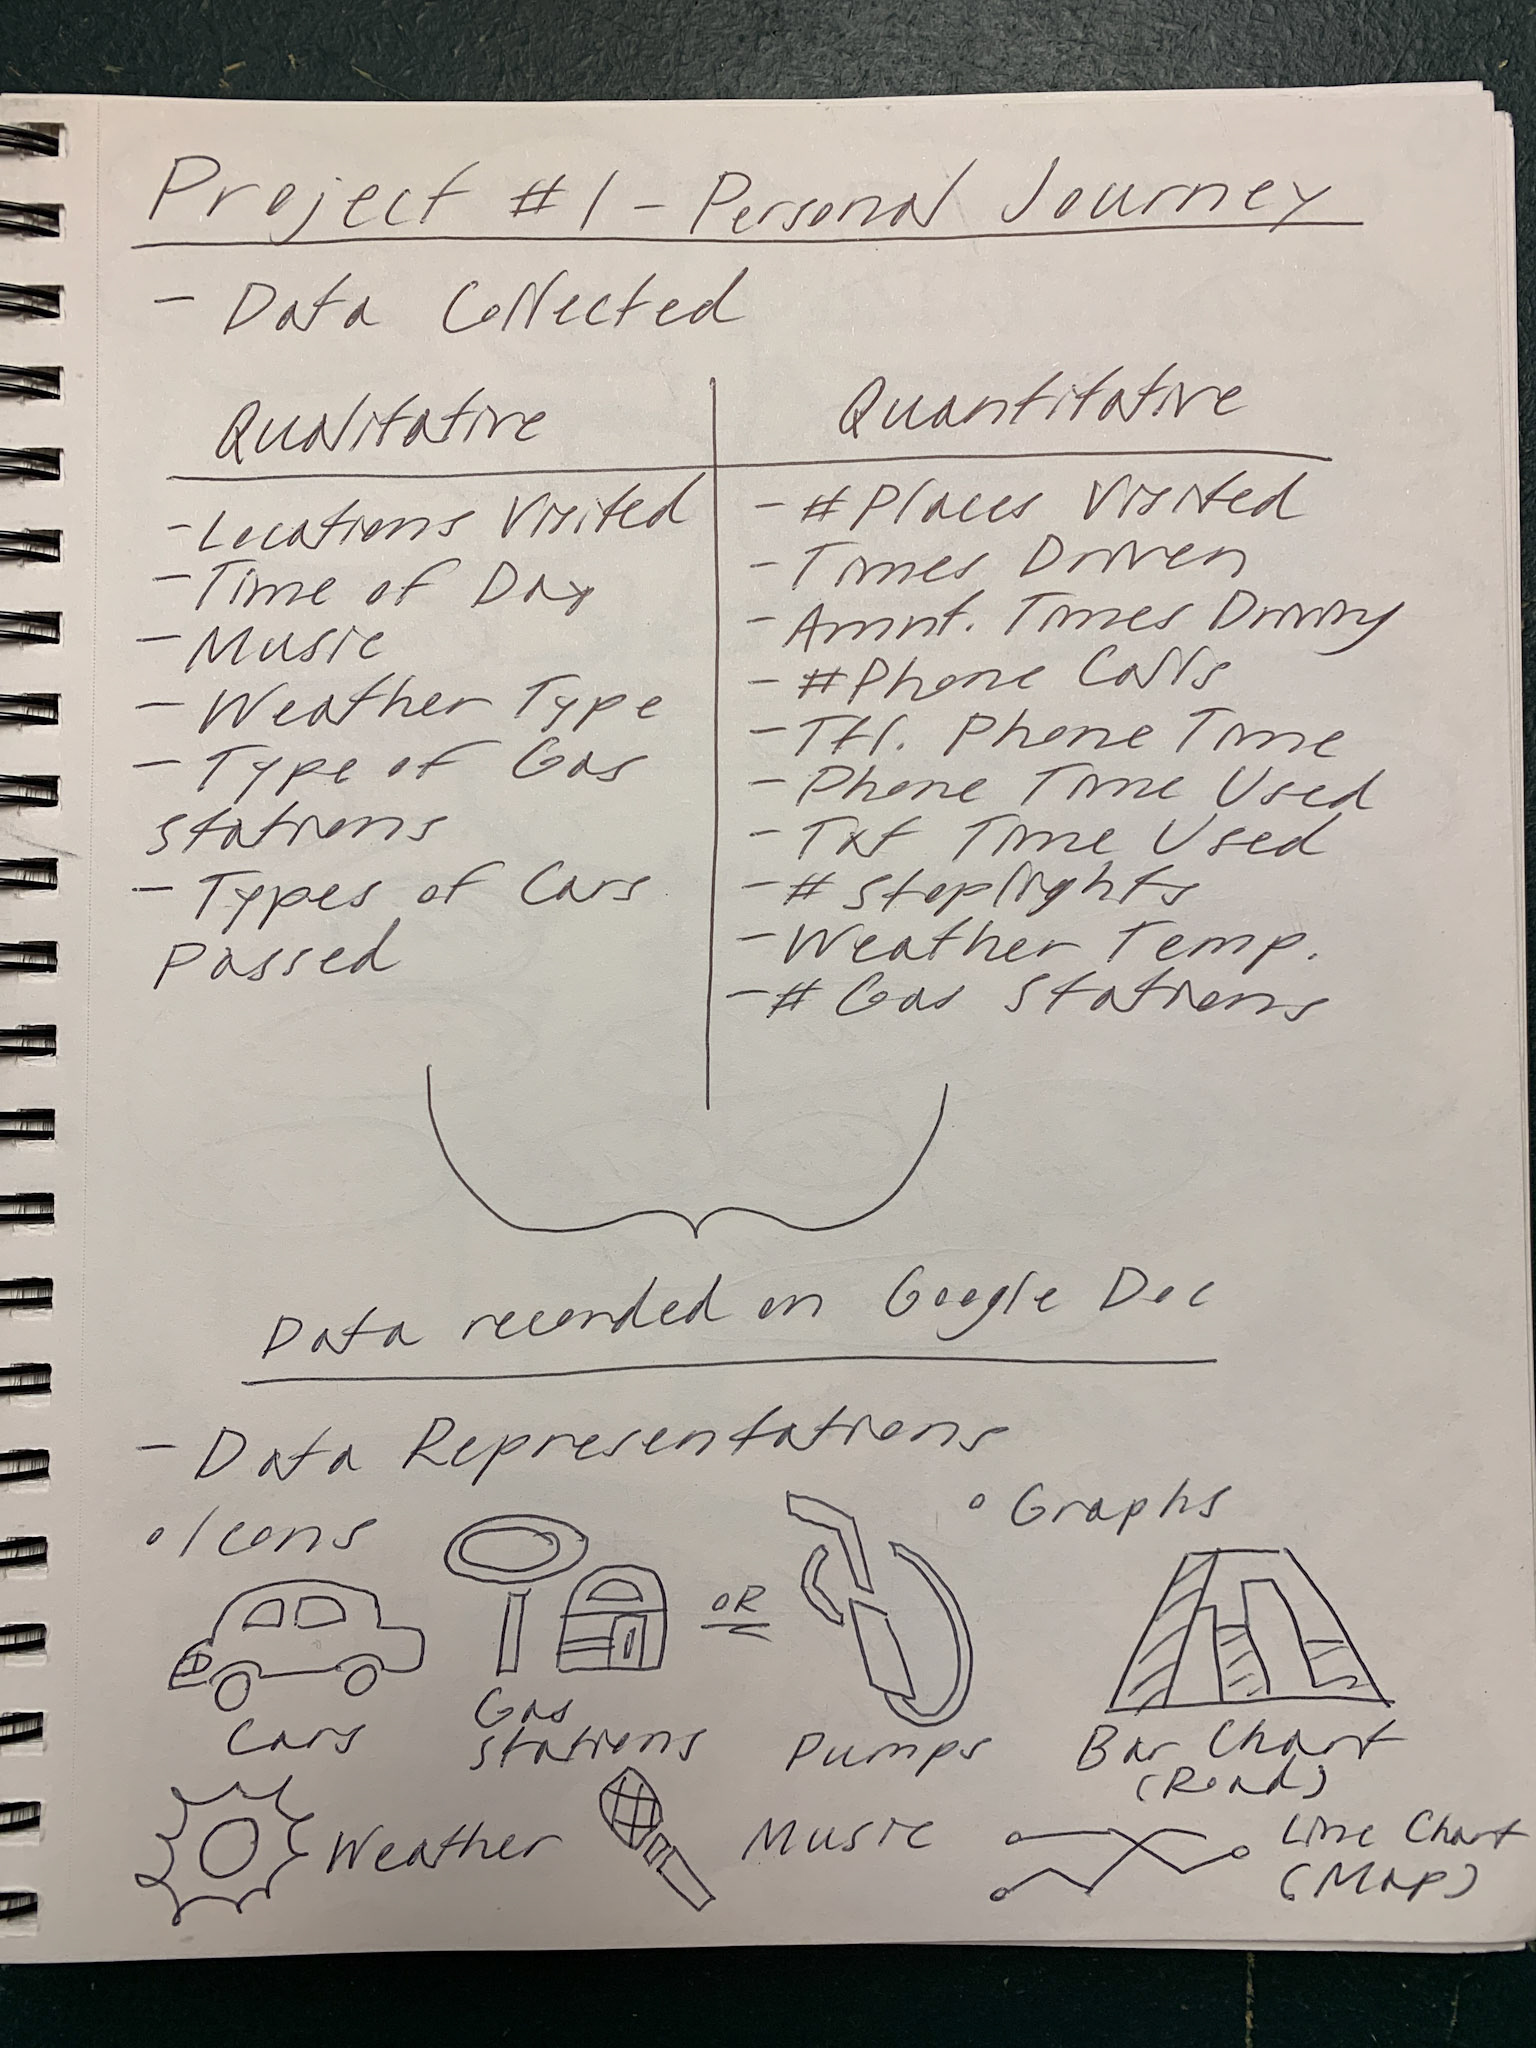 Project #1 - Personal Journey
- Data Collected
Qualitative
- Locations Visited
- Time of Day
- Music
- Weather Type
- Type of Gas
stations
- Types of Cars
Passed
Quantitative
- #Places Visited
- Times Driven
- Amnt. Times Driving
- #Phone Calls
- Ttl. Phone Time
- Phone Time Used
- Txt Time Used
- # Stoplights
- Weather Temp.
- # Gas Stations
Data recorded on Google Doc
- Data Representations
° Icons
Cars
Gas
stations
OR
Pumps
Weather
Music
° Graphs
Bar Chart
(Road)
Line Chart
(Map)